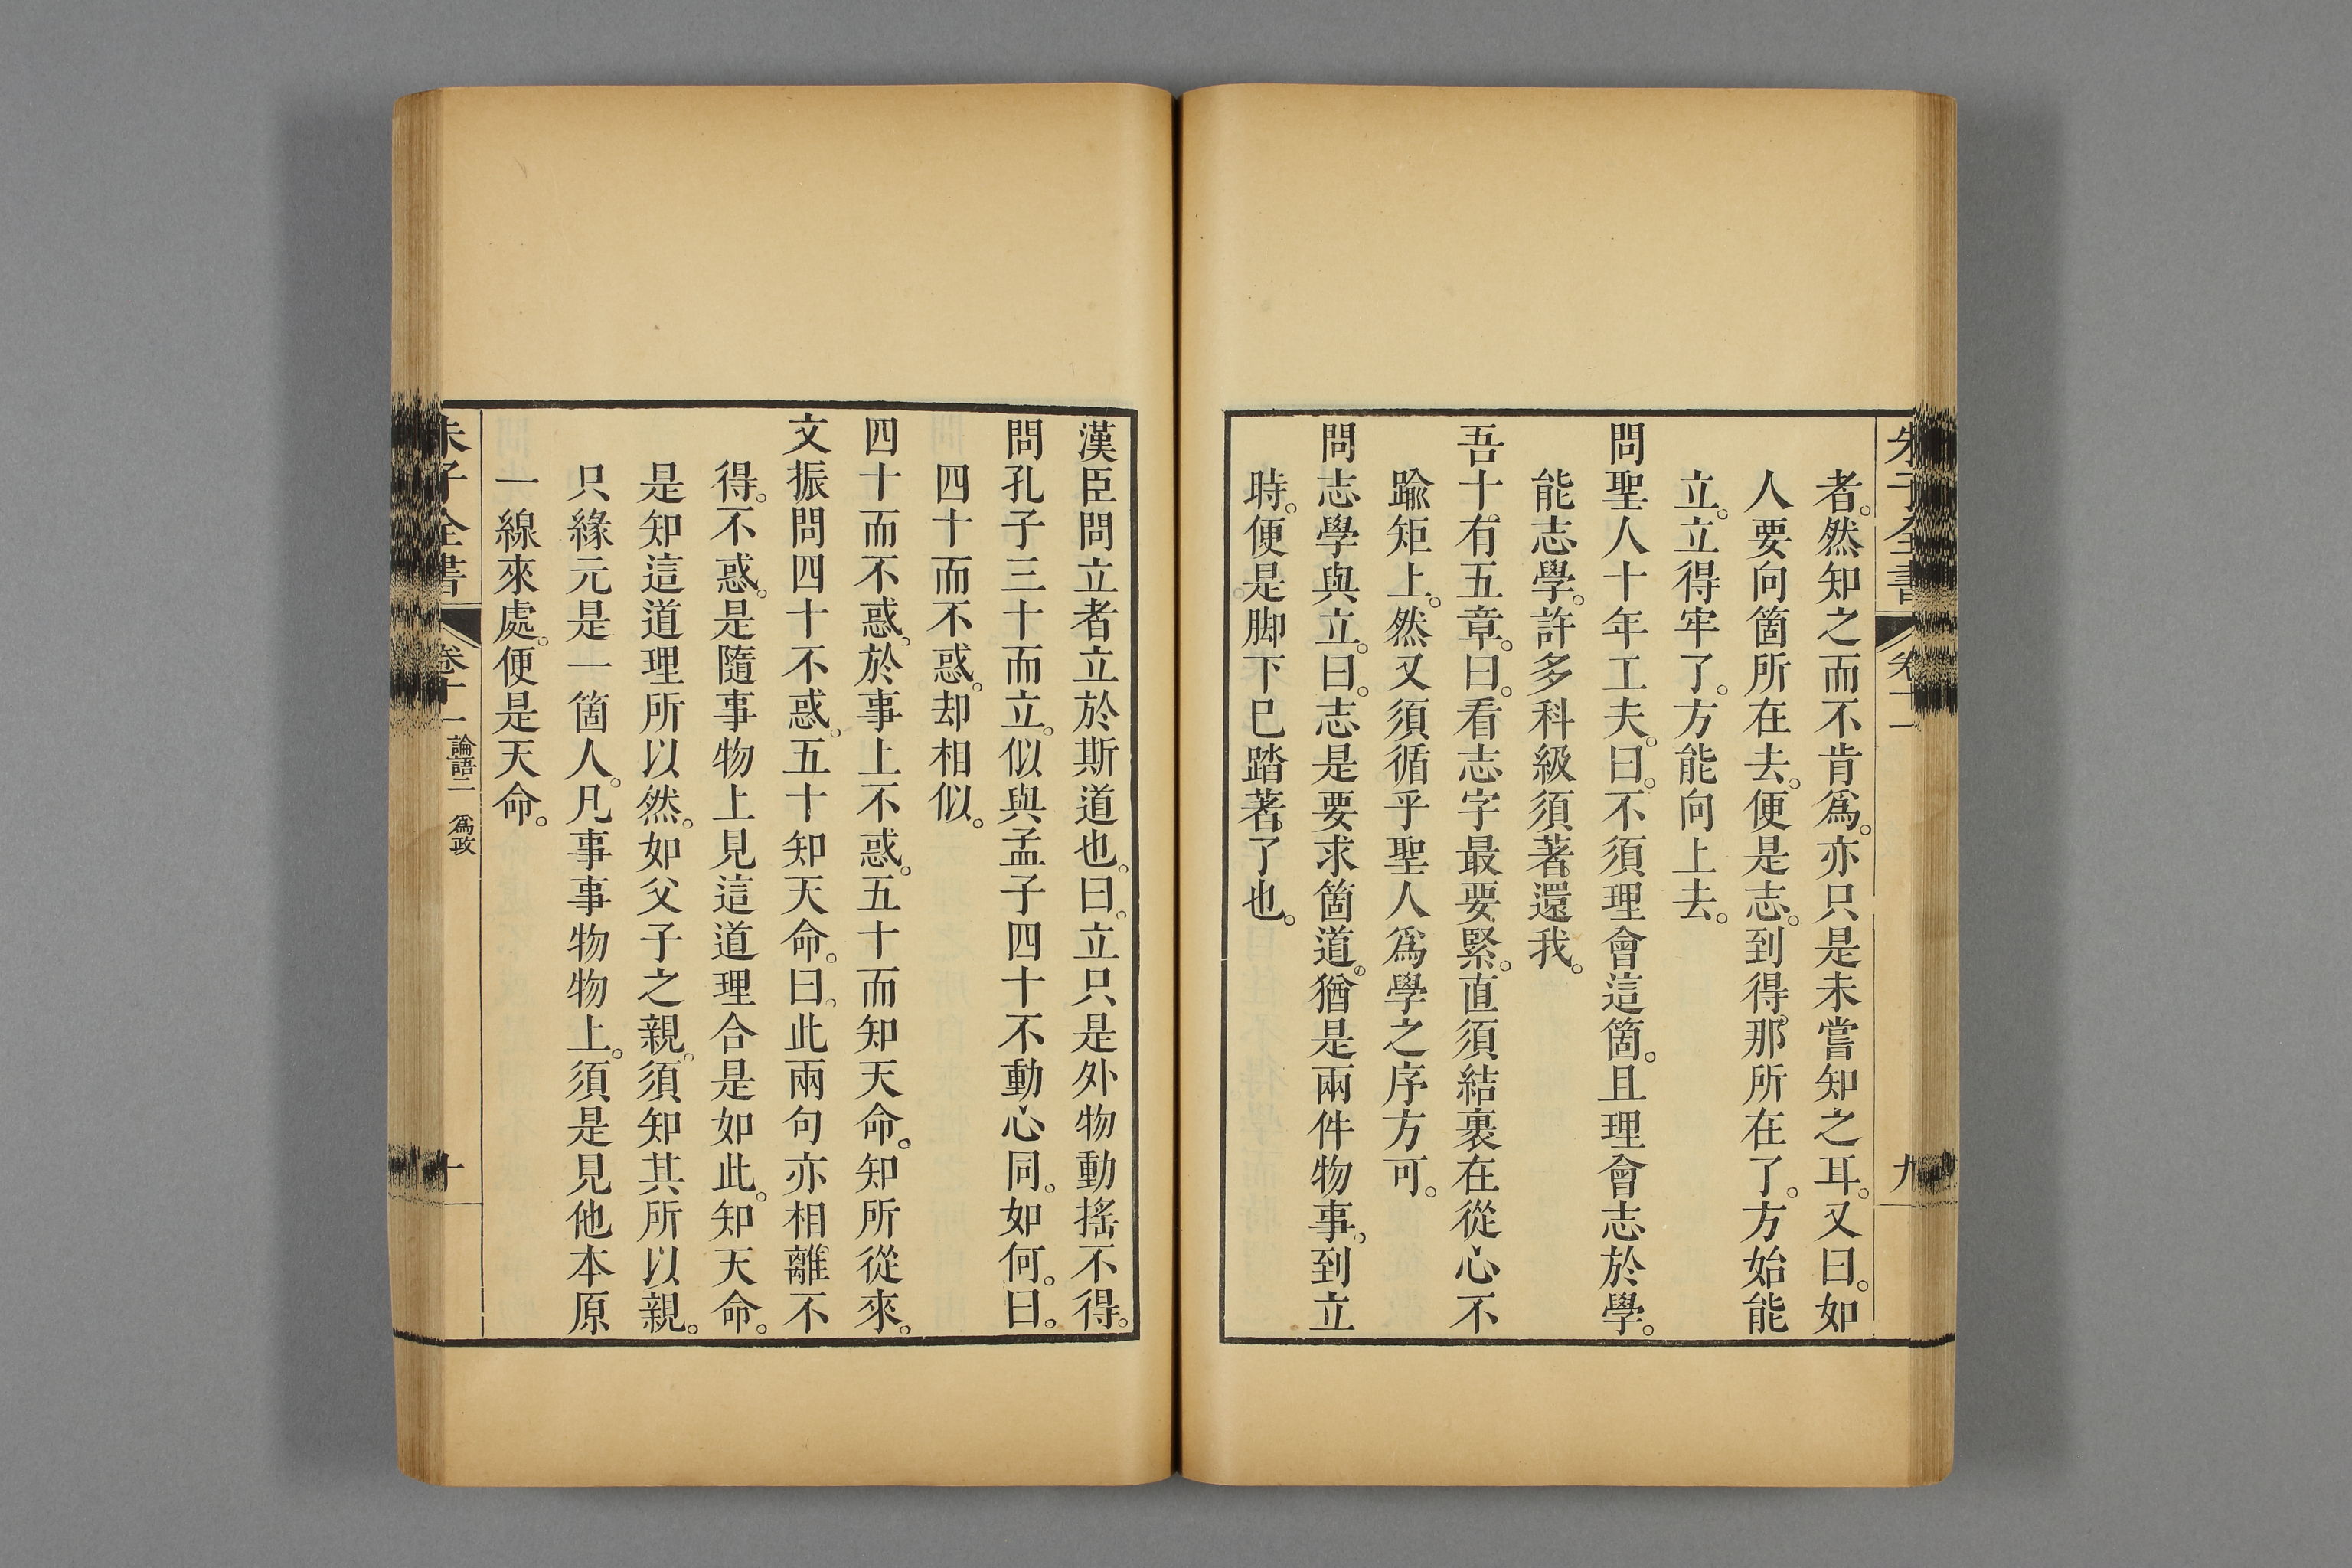 朱子全書 卷十一 九
者。然知之而不肯爲。亦只是未嘗知之耳。又曰。如
人要向箇所在去。便是志。到得那所在了。方始能
立。立得牢了。方能向上去。
問聖人十年工夫。曰。不須理會這箇。且理會志於學。
能志學。許多科級須著還我。
吾十有五章。曰。看志字最要緊。直須結裹在從心不
踰矩上。然又須循乎聖人爲學之序方可。
問志學與立。曰。志是要求箇道。猶是兩件物事。到立
時。便是脚下已踏著了也。
漢臣問立者立於斯道也。曰。立只是外物動搖不得。
問孔子三十而立。似與孟子四十不動心同。如何。曰。
四十而不惑。却相似。
四十而不惑。於事上不惑。五十而知天命。知所從來。
文振問四十不惑。五十知天命。曰。此兩句亦相離不
得。不惑。是隨事物上見這道理合是如此。知天命。
是知這道理所以然。如父子之親。須知其所以親。
只緣元是一箇人。凡事事物物上。須是見他本原
一線來處。便是天命。
朱子全書 卷十一 論語二 爲政 十